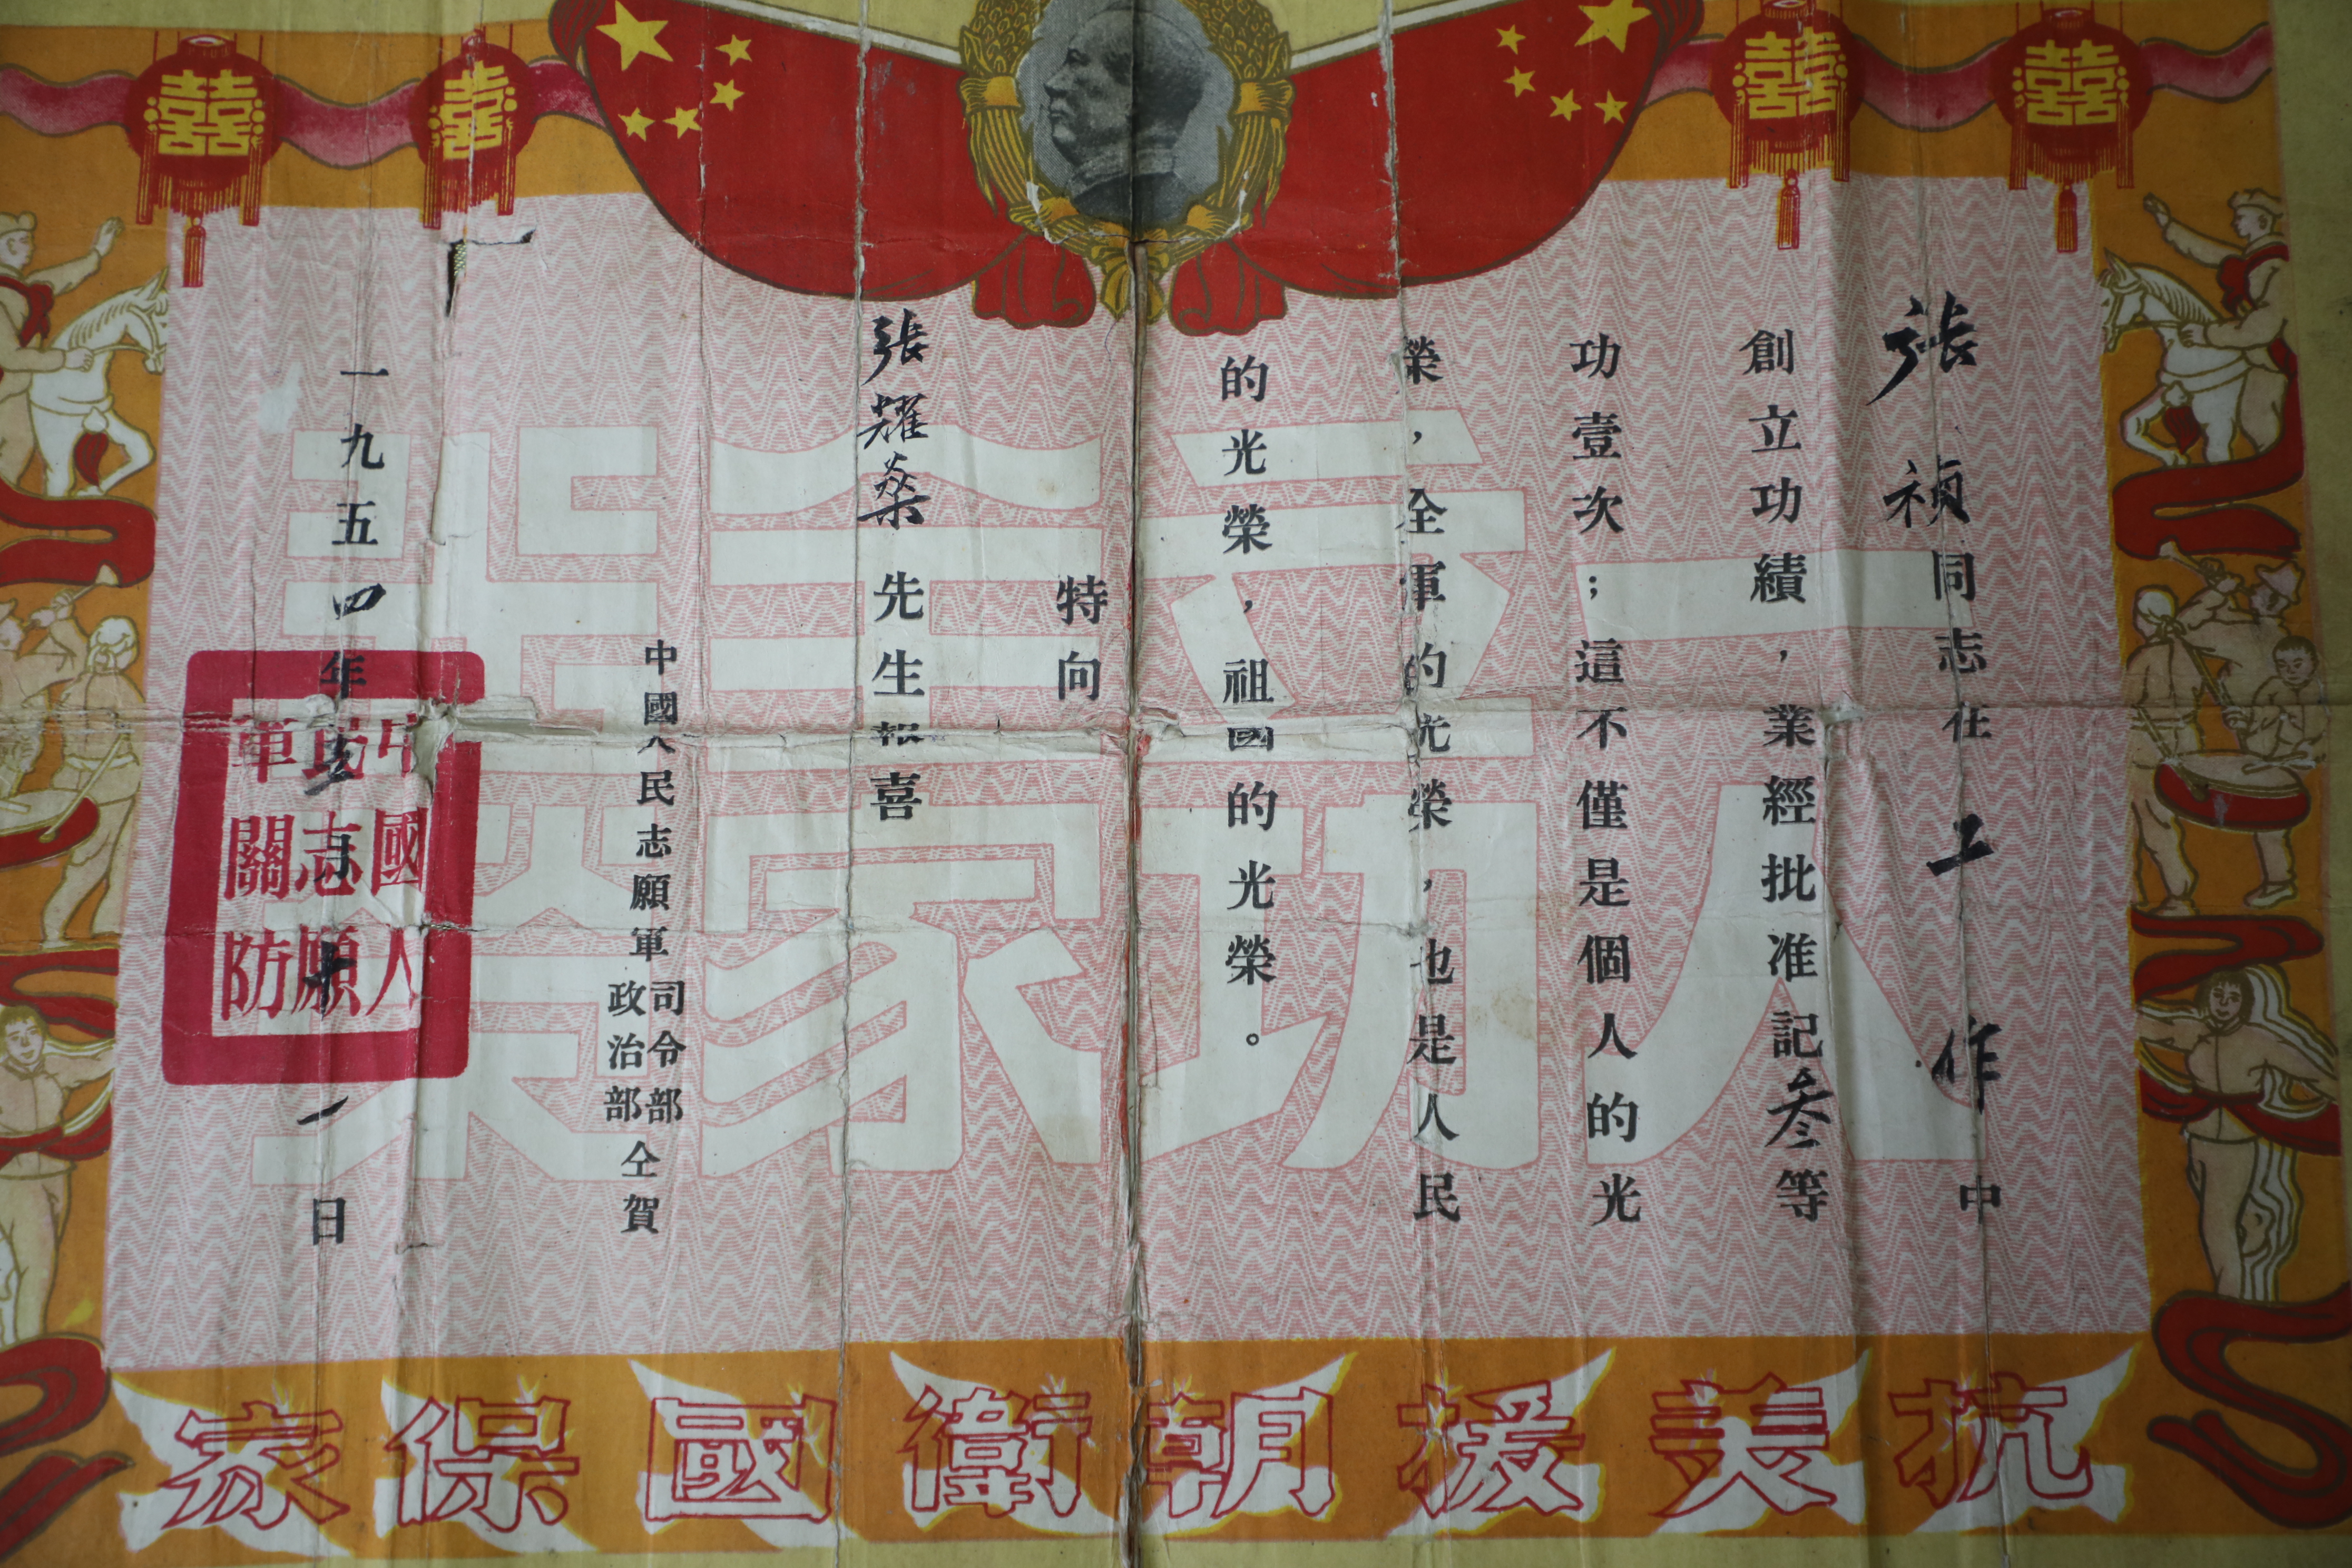 囍 囍 囍 囍
張禎同志在工作中
創立功績，業經批准記叁等
功壹次；這不僅是個人的光
榮，全軍的光榮，也是人民
的光榮，祖國的光榮。
特向
張耀燊先生報喜
中國人民志願軍
司令部
政治部
仝賀
一九五四年五月十一日
中國人
民志願
軍關防
一人
立功
全家
光榮
抗美援朝衛國保家